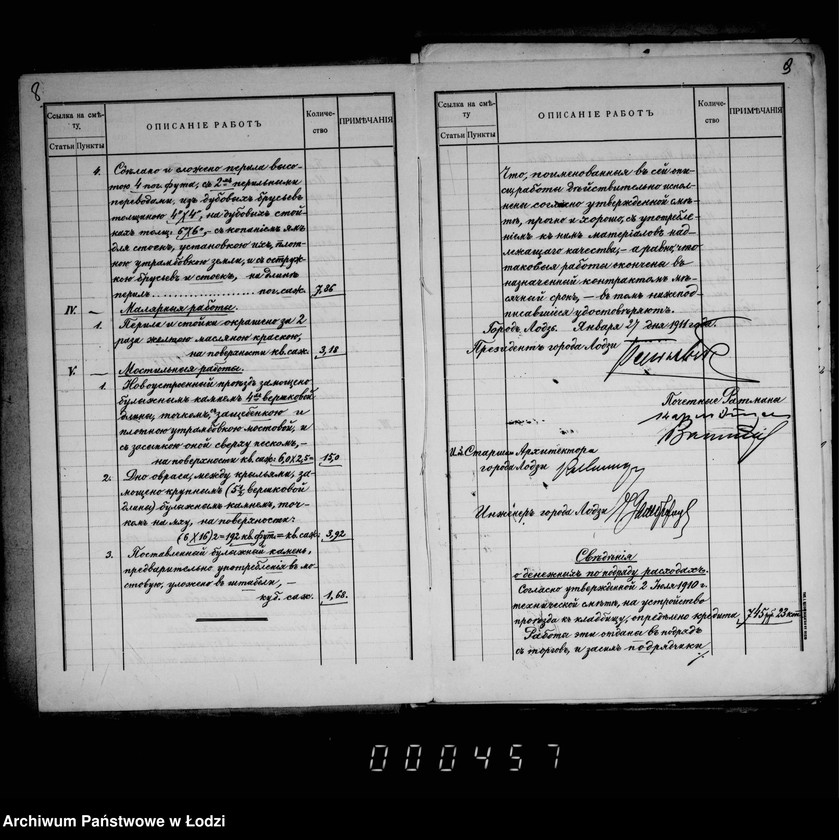 8
Ссылка на смѣту.
Статьи Пункты
ОПИСАНІЕ РАБОТЪ
Количество
ПРИМѢЧАНІЯ
4. Сдѣлано и сложено перила высо-
тою 4 пог. фута, съ 2мя перильными
переводами, изъ дубовыхъ брусьевъ
толщиною 4"х4", на дубовыхъ стой-
кахъ толщ. 6"х6", – съ копаніемъ ямъ
для стоекъ, установкою ихъ, плот-
ною утрамбовкою земли, и съ оструж-
кою брусьевъ и стоекъ, на длинѣ
перилъ ............ пог. саж. 7,86
IV. — Малярныя работы.
1. Перила и стойки окрашено за 2
раза желтою масляною краскою,
на поверхности кв. саж. 3,18
V. — Мостильныя работы.
1. Новоустроенный проѣздъ замощено
булыжнымъ камнемъ 4хъ вершковой
длины, точкомъ, защебенкою и
плотною утрамбовкою мостовой, и
съ засыпкою оной сверху пескомъ, –
на поверхности кв. саж: 6,0х2,5= 15,0
2. Дно оврага, между крыльями, за-
мощено крупнымъ (5½ вершковой
длины) булыжнымъ камнемъ, точ-
комъ на мху, на поверхности:
(6х16)2=192 кв. фут.= кв. саж: 3,92
3. Поставленный булыжный камень,
предварительно употребленія въ мо-
стовую, уложено въ штабели, –
куб. саж. 1,68.
9
Ссылка на смѣту.
Статьи Пункты
ОПИСАНІЕ РАБОТЪ
Количество
ПРИМѢЧАНІЯ
Что, поименованныя въ сей опи-
си работы дѣйствительно испол-
нены согласно утвержденной смѣ-
тѣ, прочно и хорошо, съ употребле-
ніемъ къ нимъ матеріаловъ над-
лежащаго качества, – а равно, что
таковыя работы окончены въ
назначенный контрактомъ мѣ-
сячный срокъ, – въ томъ нижепод-
писавшійся удостовѣряютъ.
Городъ Лодзь. Января 27 дня 1911 года.
Президентъ города Лодзи
Почетные Ратманы
И.д. Старшій Архитектора
города Лодзи
Инженеръ города Лодзи
Свѣдѣнія
о денежныхъ по подряду расходахъ.
Согласно утвержденной 2 Іюля 1910 г.
технической смѣтѣ, на устройство
проѣзда къ кладбищу, опредѣлено кредита 745 руб 23 коп
Работа эти отданы въ подрядъ
съ торговъ, и засимъ подрядчики
000457
Archiwum Państwowe w Łodzi